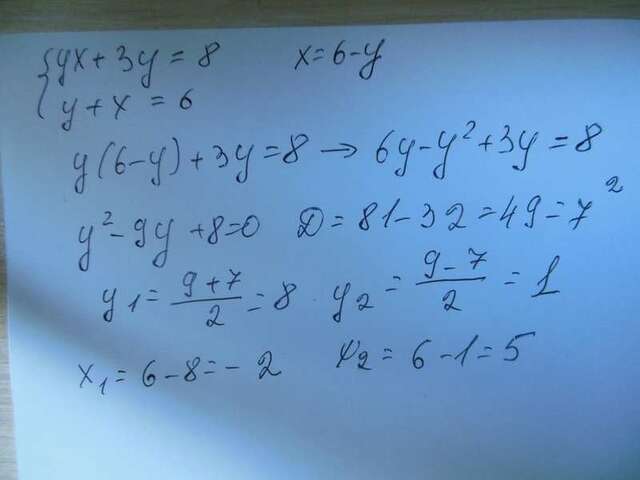 { yx + 3y = 8 x = 6 - y
y + x = 6
y(6 - y) + 3y = 8 → 6y - y² + 3y = 8
y² - 9y + 8 = 0 D = 81 - 32 = 49 = 7²
y₁ = (9 + 7)/2 = 8 y₂ = (9 - 7)/2 = 1
x₁ = 6 - 8 = - 2 x₂ = 6 - 1 = 5